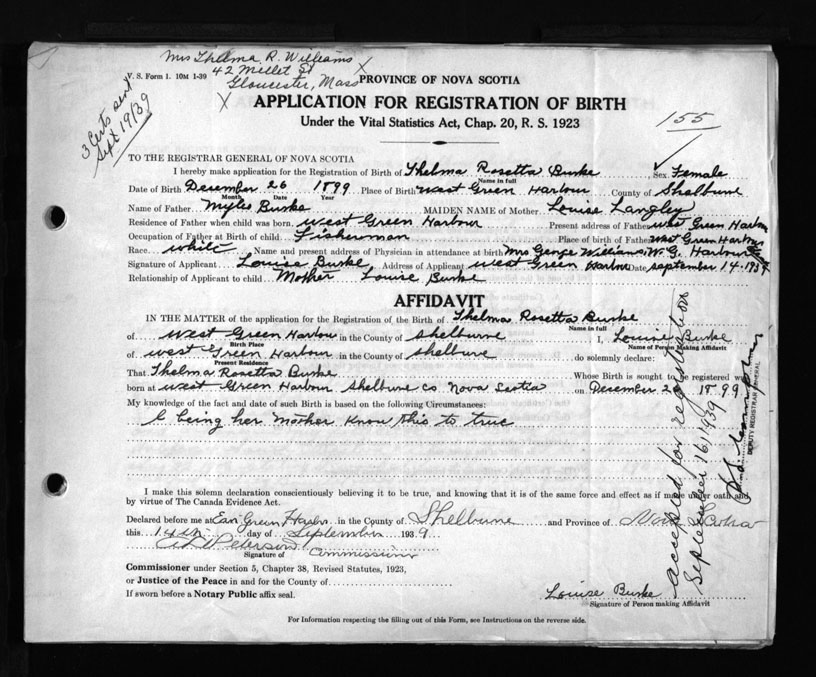 Mrs Thelma R. Williams
V. S. Form 1. 10M 1-39
42 Millet St
Gloucester, Mass
X
X
3 Certs sent
Sept 19/39
PROVINCE OF NOVA SCOTIA
APPLICATION FOR REGISTRATION OF BIRTH
Under the Vital Statistics Act, Chap. 20, R. S. 1923
155
TO THE REGISTRAR GENERAL OF NOVA SCOTIA
I hereby make application for the Registration of Birth of Thelma Rosetta Burke Sex Female
Name in full
Date of Birth December 26 1899 Place of Birth West Green Harbour County of Shelburne
Month Date Year
Name of Father Myles Burke MAIDEN NAME of Mother Louise Langley
Residence of Father when child was born. West Green Harbour Present address of Father West Green Harbour
Occupation of Father at Birth of child. Fisherman Place of birth of Father West Green Harbour
Race. White Name and present address of Physician in attendance at birth Mrs George Williams W. G. Harbour
Signature of Applicant Louise Burke Address of Applicant West Green Harbour Date September 14. 1939
Relationship of Applicant to child Mother Louise Burke
AFFIDAVIT
IN THE MATTER of the application for the Registration of the Birth of Thelma Rosetta Burke
Name in full
of West Green Harbour in the County of Shelburne I, Louise Burke
Birth Place Name of Person Making Affidavit
of West Green Harbour in the County of Shelburne do solemnly declare:
Present Residence
That Thelma Rosetta Burke Whose Birth is sought to be registered was
born at West Green Harbour Shelburne Co. Nova Scotia on December 26 1899
My knowledge of the fact and date of such Birth is based on the following Circumstances:
I being her Mother Know this to true
I make this solemn declaration conscientiously believing it to be true, and knowing that it is of the same force and effect as if made under oath and
by virtue of The Canada Evidence Act.
Declared before me at East Green Harbor in the County of Shelburne and Province of Nova Scotia
this 14th day of September 1939
Peterson
Signature of Commissioner
Commissioner under Section 5, Chapter 38, Revised Statutes, 1923,
or Justice of the Peace in and for the County of
If sworn before a Notary Public affix seal.
Louise Burke
Signature of Person making Affidavit
For Information respecting the filling out of this Form, see Instructions on the reverse.
accepted for registration
September 16, 1939
DEPUTY REGISTRAR GENERAL